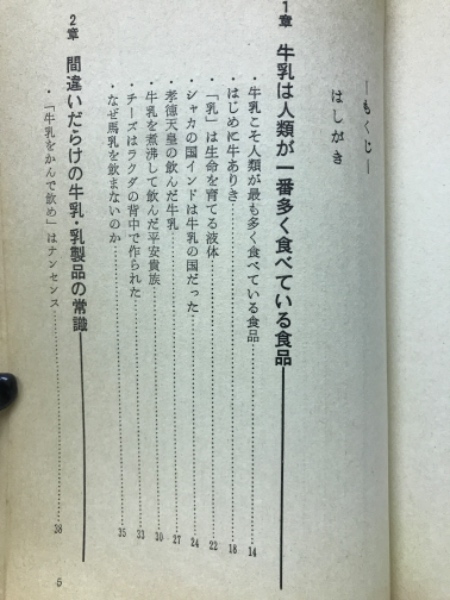 ―もくじ―
はしがき
1章 牛乳は人類が一番多く食べている食品
・牛乳こそ人類が最も多く食べている食品 14
・はじめに牛ありき 18
・「乳」は生命を育てる液体 22
・シャカの国インドは牛乳の国だった 24
・孝徳天皇の飲んだ牛乳 27
・牛乳を煮沸して飲んだ平安貴族 30
・チーズはラクダの背中で作られた 33
・なぜ馬乳を飲まないのか 35
2章 間違いだらけの牛乳・乳製品の常識
・「牛乳をかんで飲め」はナンセンス 38
5